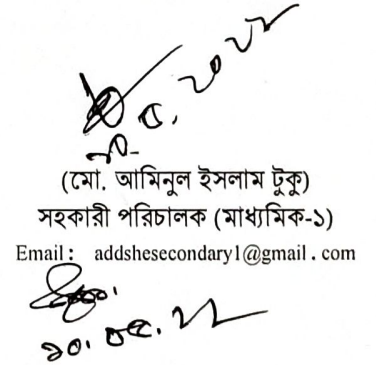 (মো. আমিনুল ইসলাম টুকু)
সহকারী পরিচালক (মাধ্যমিক-১)
Email : addshesecondary1@gmail . com